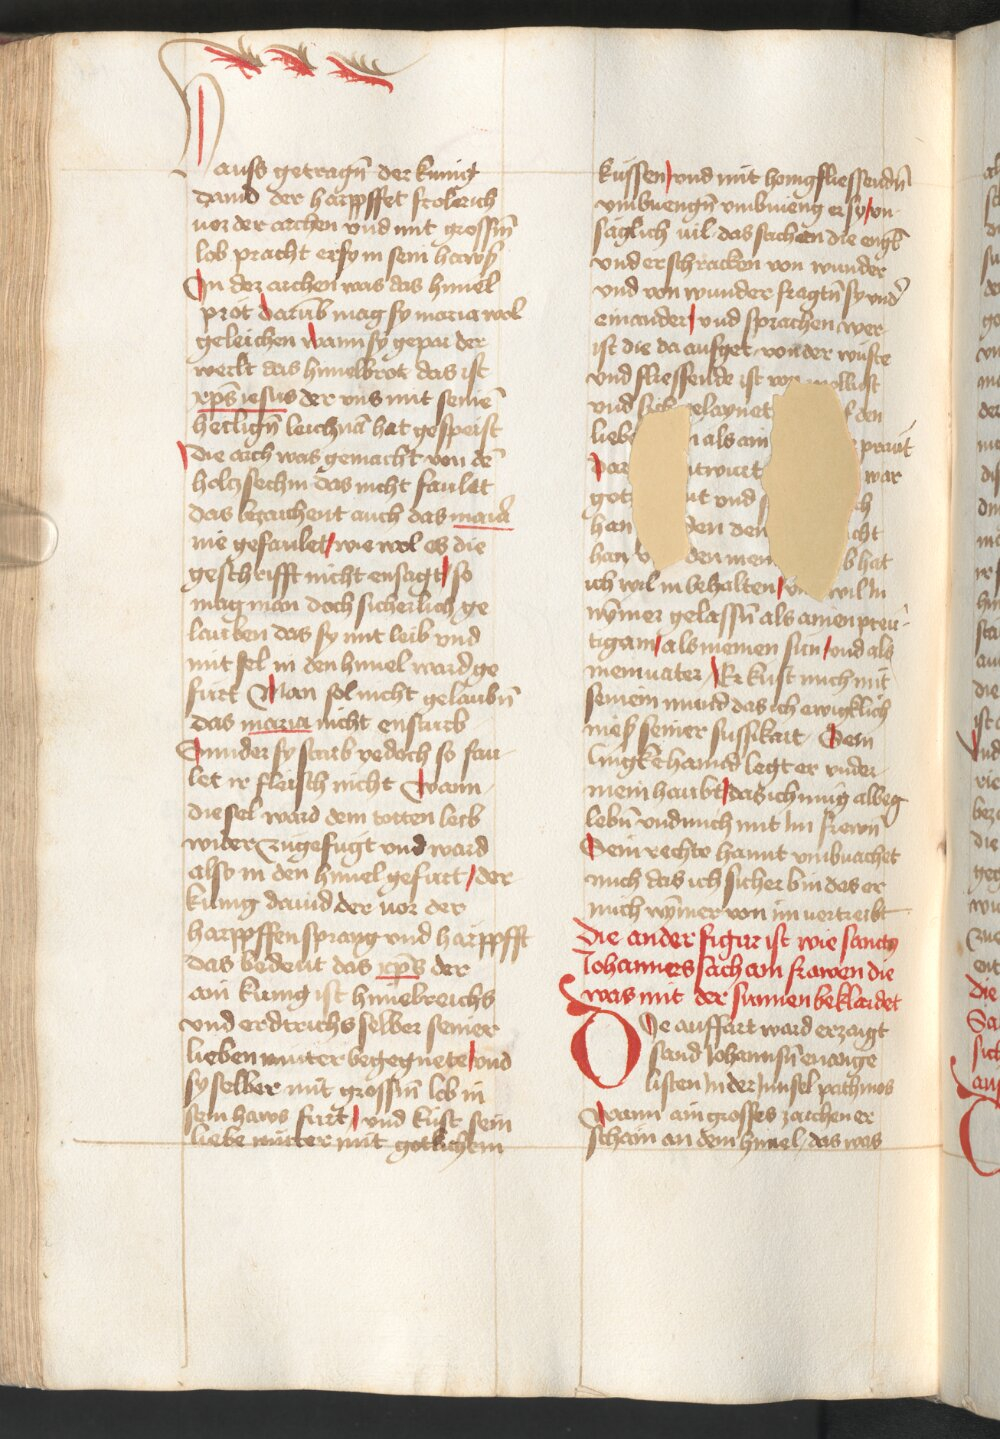 hauss getragn̄ der kunig
dauid der harpffet froleich
uor der archen vnd mit grossm̄
lob pracht er sy in sein haws
In der archen was das himel
prot darūb mag sy maria wol
geleichen wann sy gepar der
werlt das himelbrot das ist
xp̄s iesus der vns mit seinē
heilign̄ leichnā hat gespeist
die arch was gemacht von dē
holcz sechim das nicht faulat
das bezaichent auch das maria
nie gefaulet wie wol es die
geschrifft nicht ensagt so
mag man doch sicherlich ge
lauben das sy mit leib vnd
mit sel in den himel ward ge
furt Man sol nicht gelaubn̄
das maria nicht enstarb
Sunder sy starb yedoch so fau
let ir fleisch nicht Wann
die sel ward dem totten leib
wider zugefugt vnd ward
also in den himel gefurt der
kunig dauid der vor der
harpffen sprang vnd harpfft
das bedeut das xp̄s der
ain kunig ist himelreichs
vnd erdtrichs selber seiner
lieben muter begegnete vnd
sy selber mit grossm̄ lob in
sein haws furt vnd kust sein
liebe mutter mit gotlichem
kussen vnd mit honigfliessendn̄
vmbuengn̄ vmbuieng er sy vn
saglich uil das sachen die engl
vnd erschracken von wunder
vnd von wunder fragtn̄ sy vnd
einander vnd sprachen wer
ist die da aufget von der wuste
vnd fliessende ist von wollust
vnd gelaynet den
liebe als ain praut
Dar antwurt war
got vnd ch
han den den cht
han den men b hat
ich wil in behalten vn wil in
nȳmer gelassn̄ als ainen preu
tigam als meinen sun vnd als
mein vater Er kust mich mit
seinem mund das ich ewigklich
nies seiner sussikait Sein
lingkē hannd legt er vnder
mein haubt das ich mug albeg
lebn̄ vnd mich mit im frewn̄
Sein rechte hannt vmbuachet
mich das ich sicher bin das er
mich nȳmer von im vertreibt
Die ander figur ist wie sanctus
Johannes sach ain frawen die
was mit der sunnen beklaidet
Die auffart ward erzaigt
sand Johannsn̄ ewange
listen in der Innsel pathmos
Wann ain grosses zaichen er
schain an dem himel das was